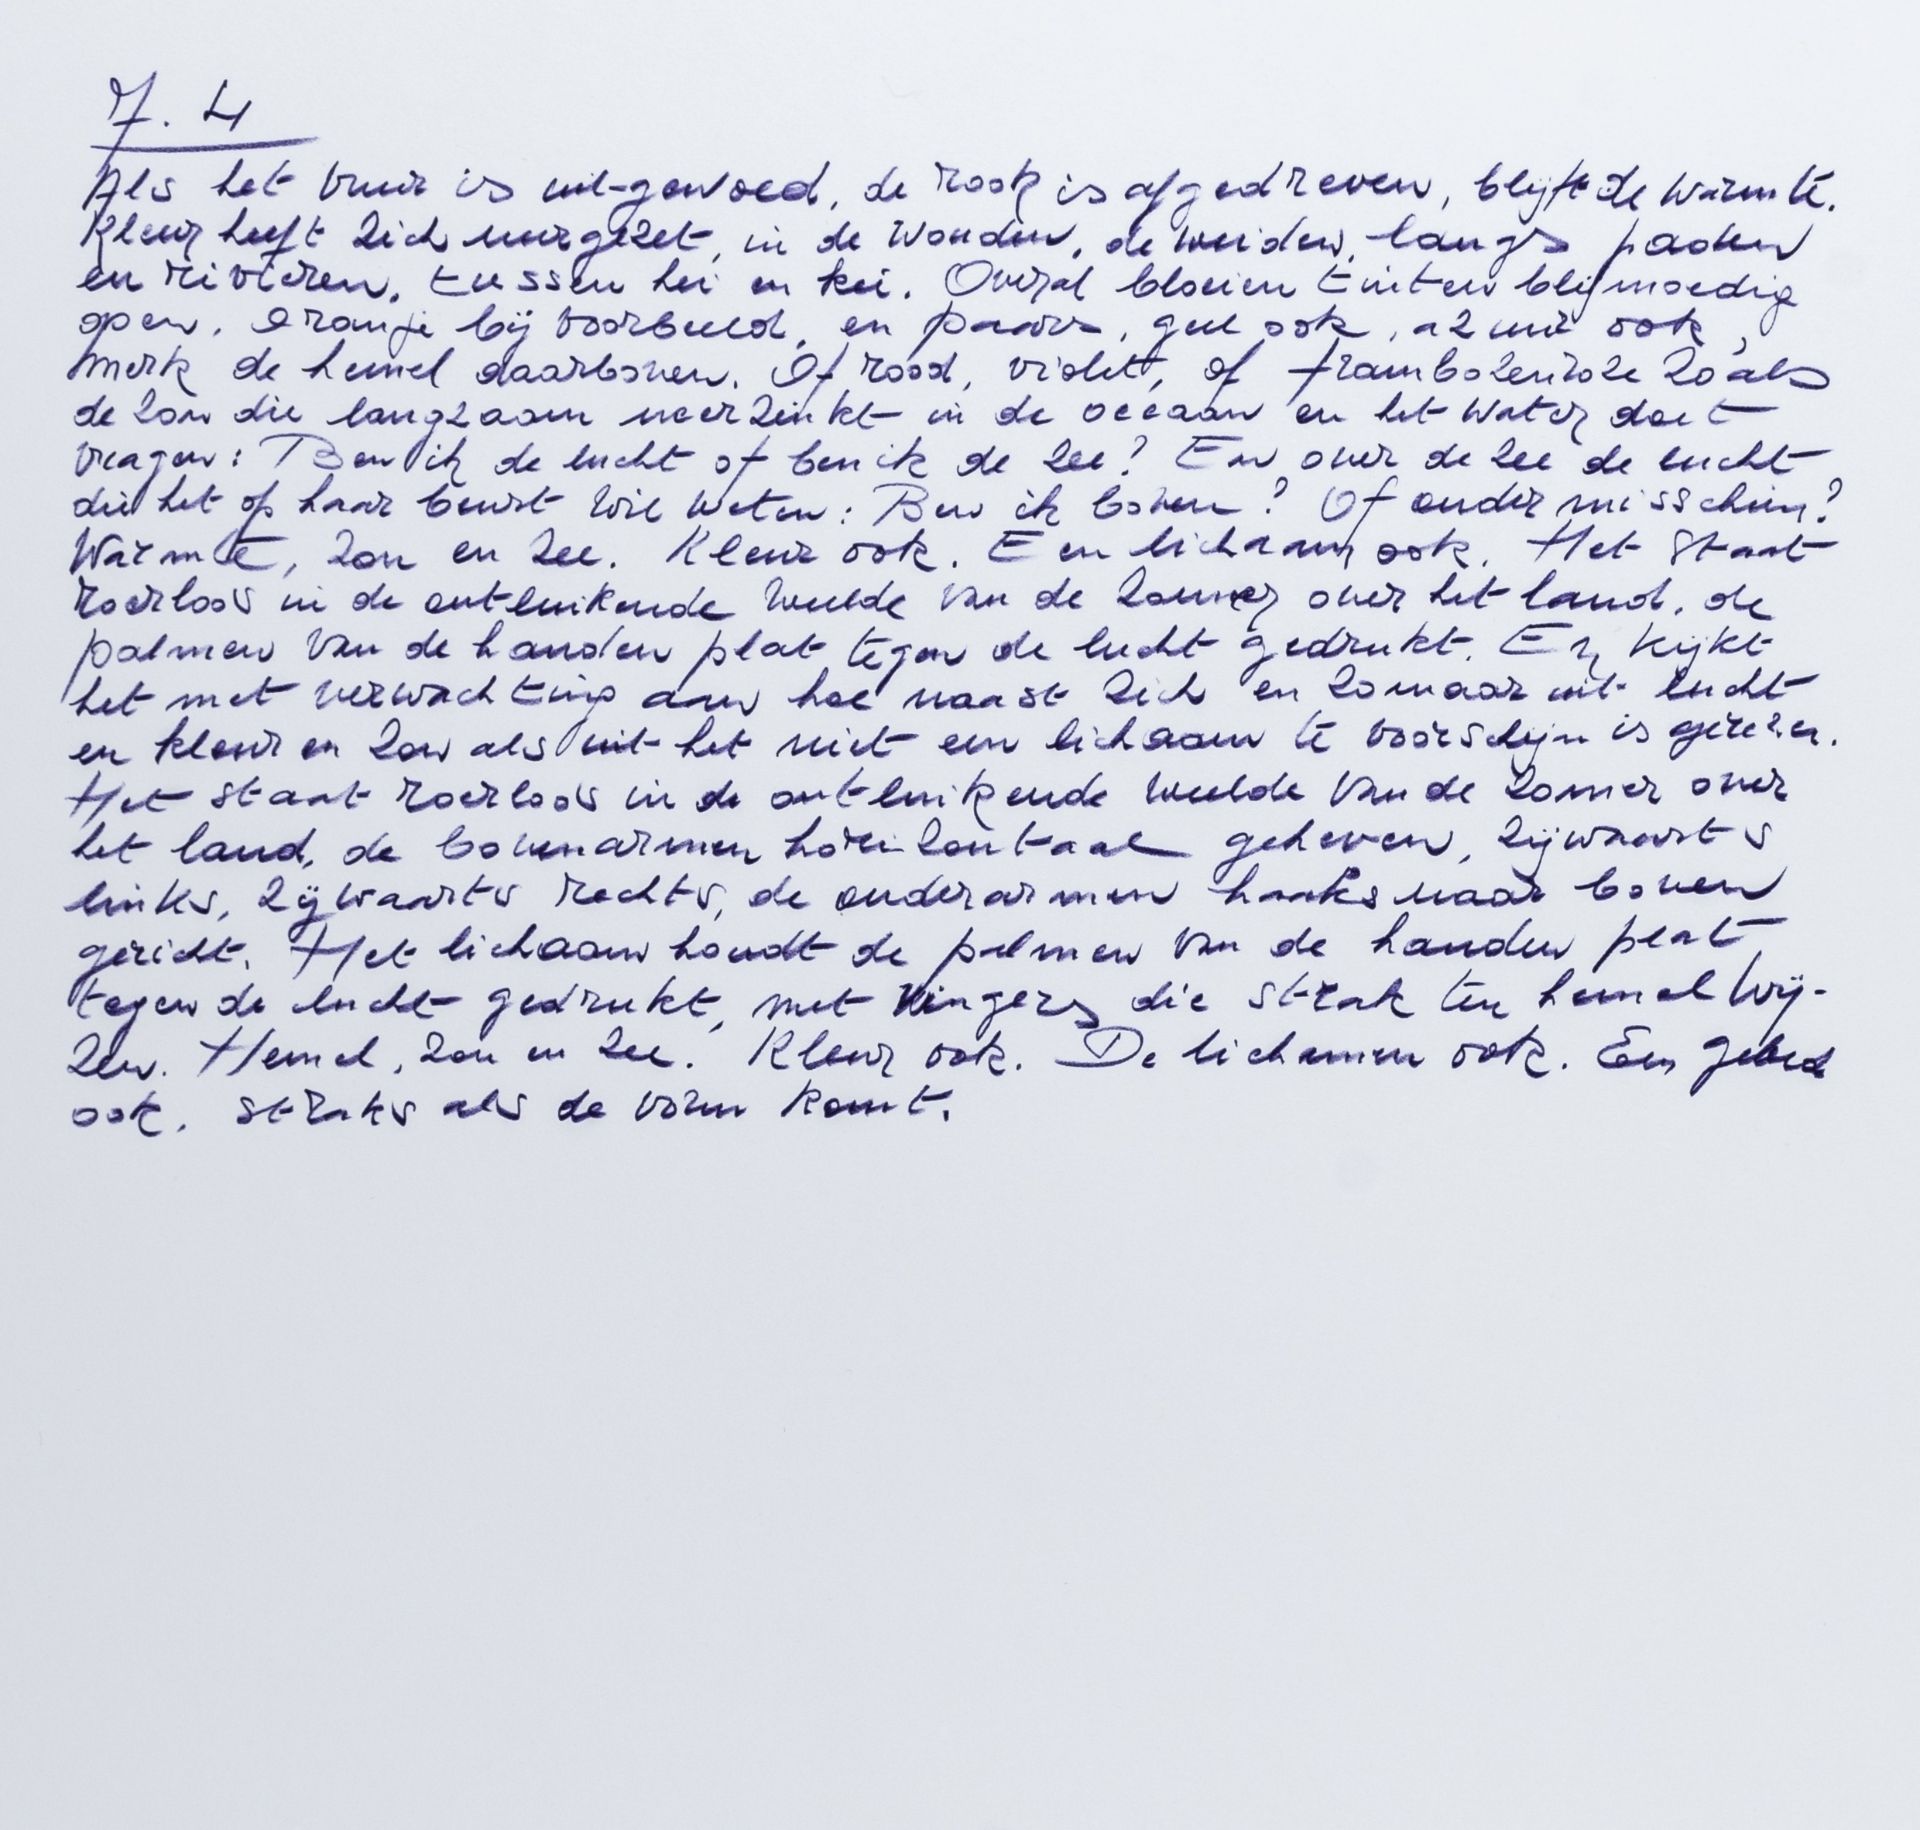 7.4
Als het vuur is uitgewoed, de rook is afgedreven, blijft de warmte.
Kleur heeft zich neergezet, in de wouden, de weiden, langs paden
en rivieren, tussen hei en kei. Overal bloeien tinten blijmoedig
open, oranje bijvoorbeeld, en paars, geel ook, azuur ook,
merk de hemel daarboven. Of rood, violet, of frambozenroze zoals
de zon die langzaam neerzinkt in de oceaan en het water doet
vragen: Ben ik de lucht of ben ik de zee? En over de zee de lucht
die het op haar beurt wil weten: Ben ik boven? Of onder misschien?
Warmte, zon en zee. Kleur ook. Een lichaam ook. Het staat
roerloos in de ontluikende weelde van de zomer over het land, de
palmen van de handen plat tegen de lucht gedrukt. En kijkt
het met verwachting aan hoe naast zich en zomaar uit lucht
en kleur en zon als uit het niet een lichaam te voorschijn is gerezen.
Het staat roerloos in de ontluikende weelde van de zomer over
het land, de bovenarmen horizontaal geheven, zijwaarts
links, zijwaarts rechts, de onderarmen haaks naar boven
gericht. Het lichaam houdt de palmen van de handen plat
tegen de lucht gedrukt, met vingers die strak ten hemel wij-
zen. Hemel, zon en zee. Kleur ook. De lichamen ook. Een gebed
ook, straks als de vorm komt.